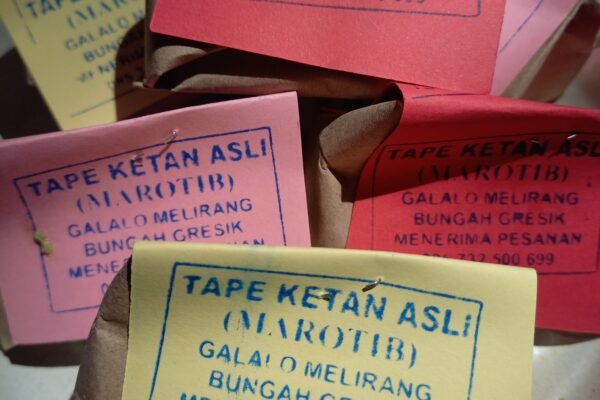 GALALO M
BUNGAH
TAPE KETAN ASLI
(MAROTIB)
GALALO MELIRANG
BUNGAH GRESIK
TAPE KETAN ASLI
(MAROTIB)
GALALO MELIRANG
BUNGAH GRESIK
MENERIMA PESANAN
732 500 699
TAPE KETAN ASLI
(MAROTIB)
GALALO MELIRANG
BUNGAH GRESIK